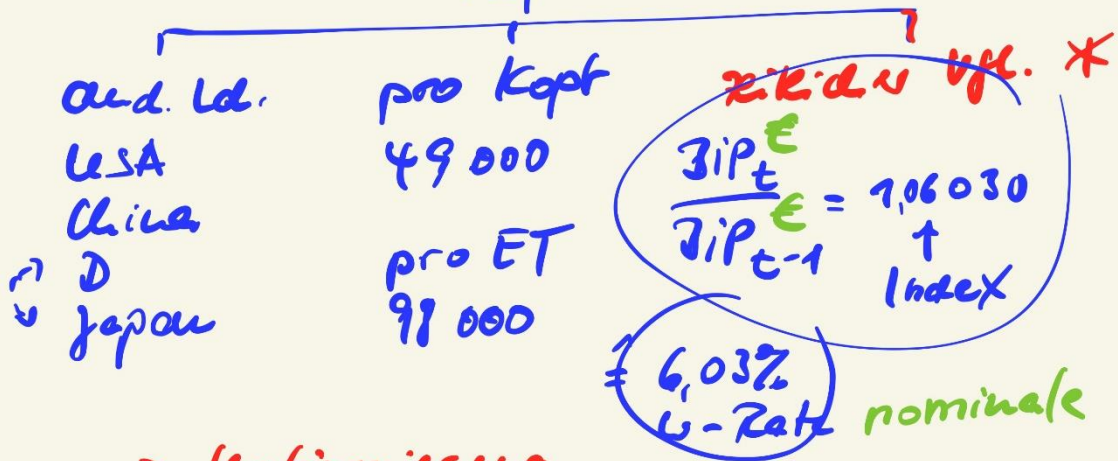 and. Ld.
USA
China
D
Japan
pro Kopf
49 000
pro ET
98 000
vgl. *
BiP t €
BiP t-1 €
= 1,06030
↑
Index
≙ 6,03%
w-Rate
nominale